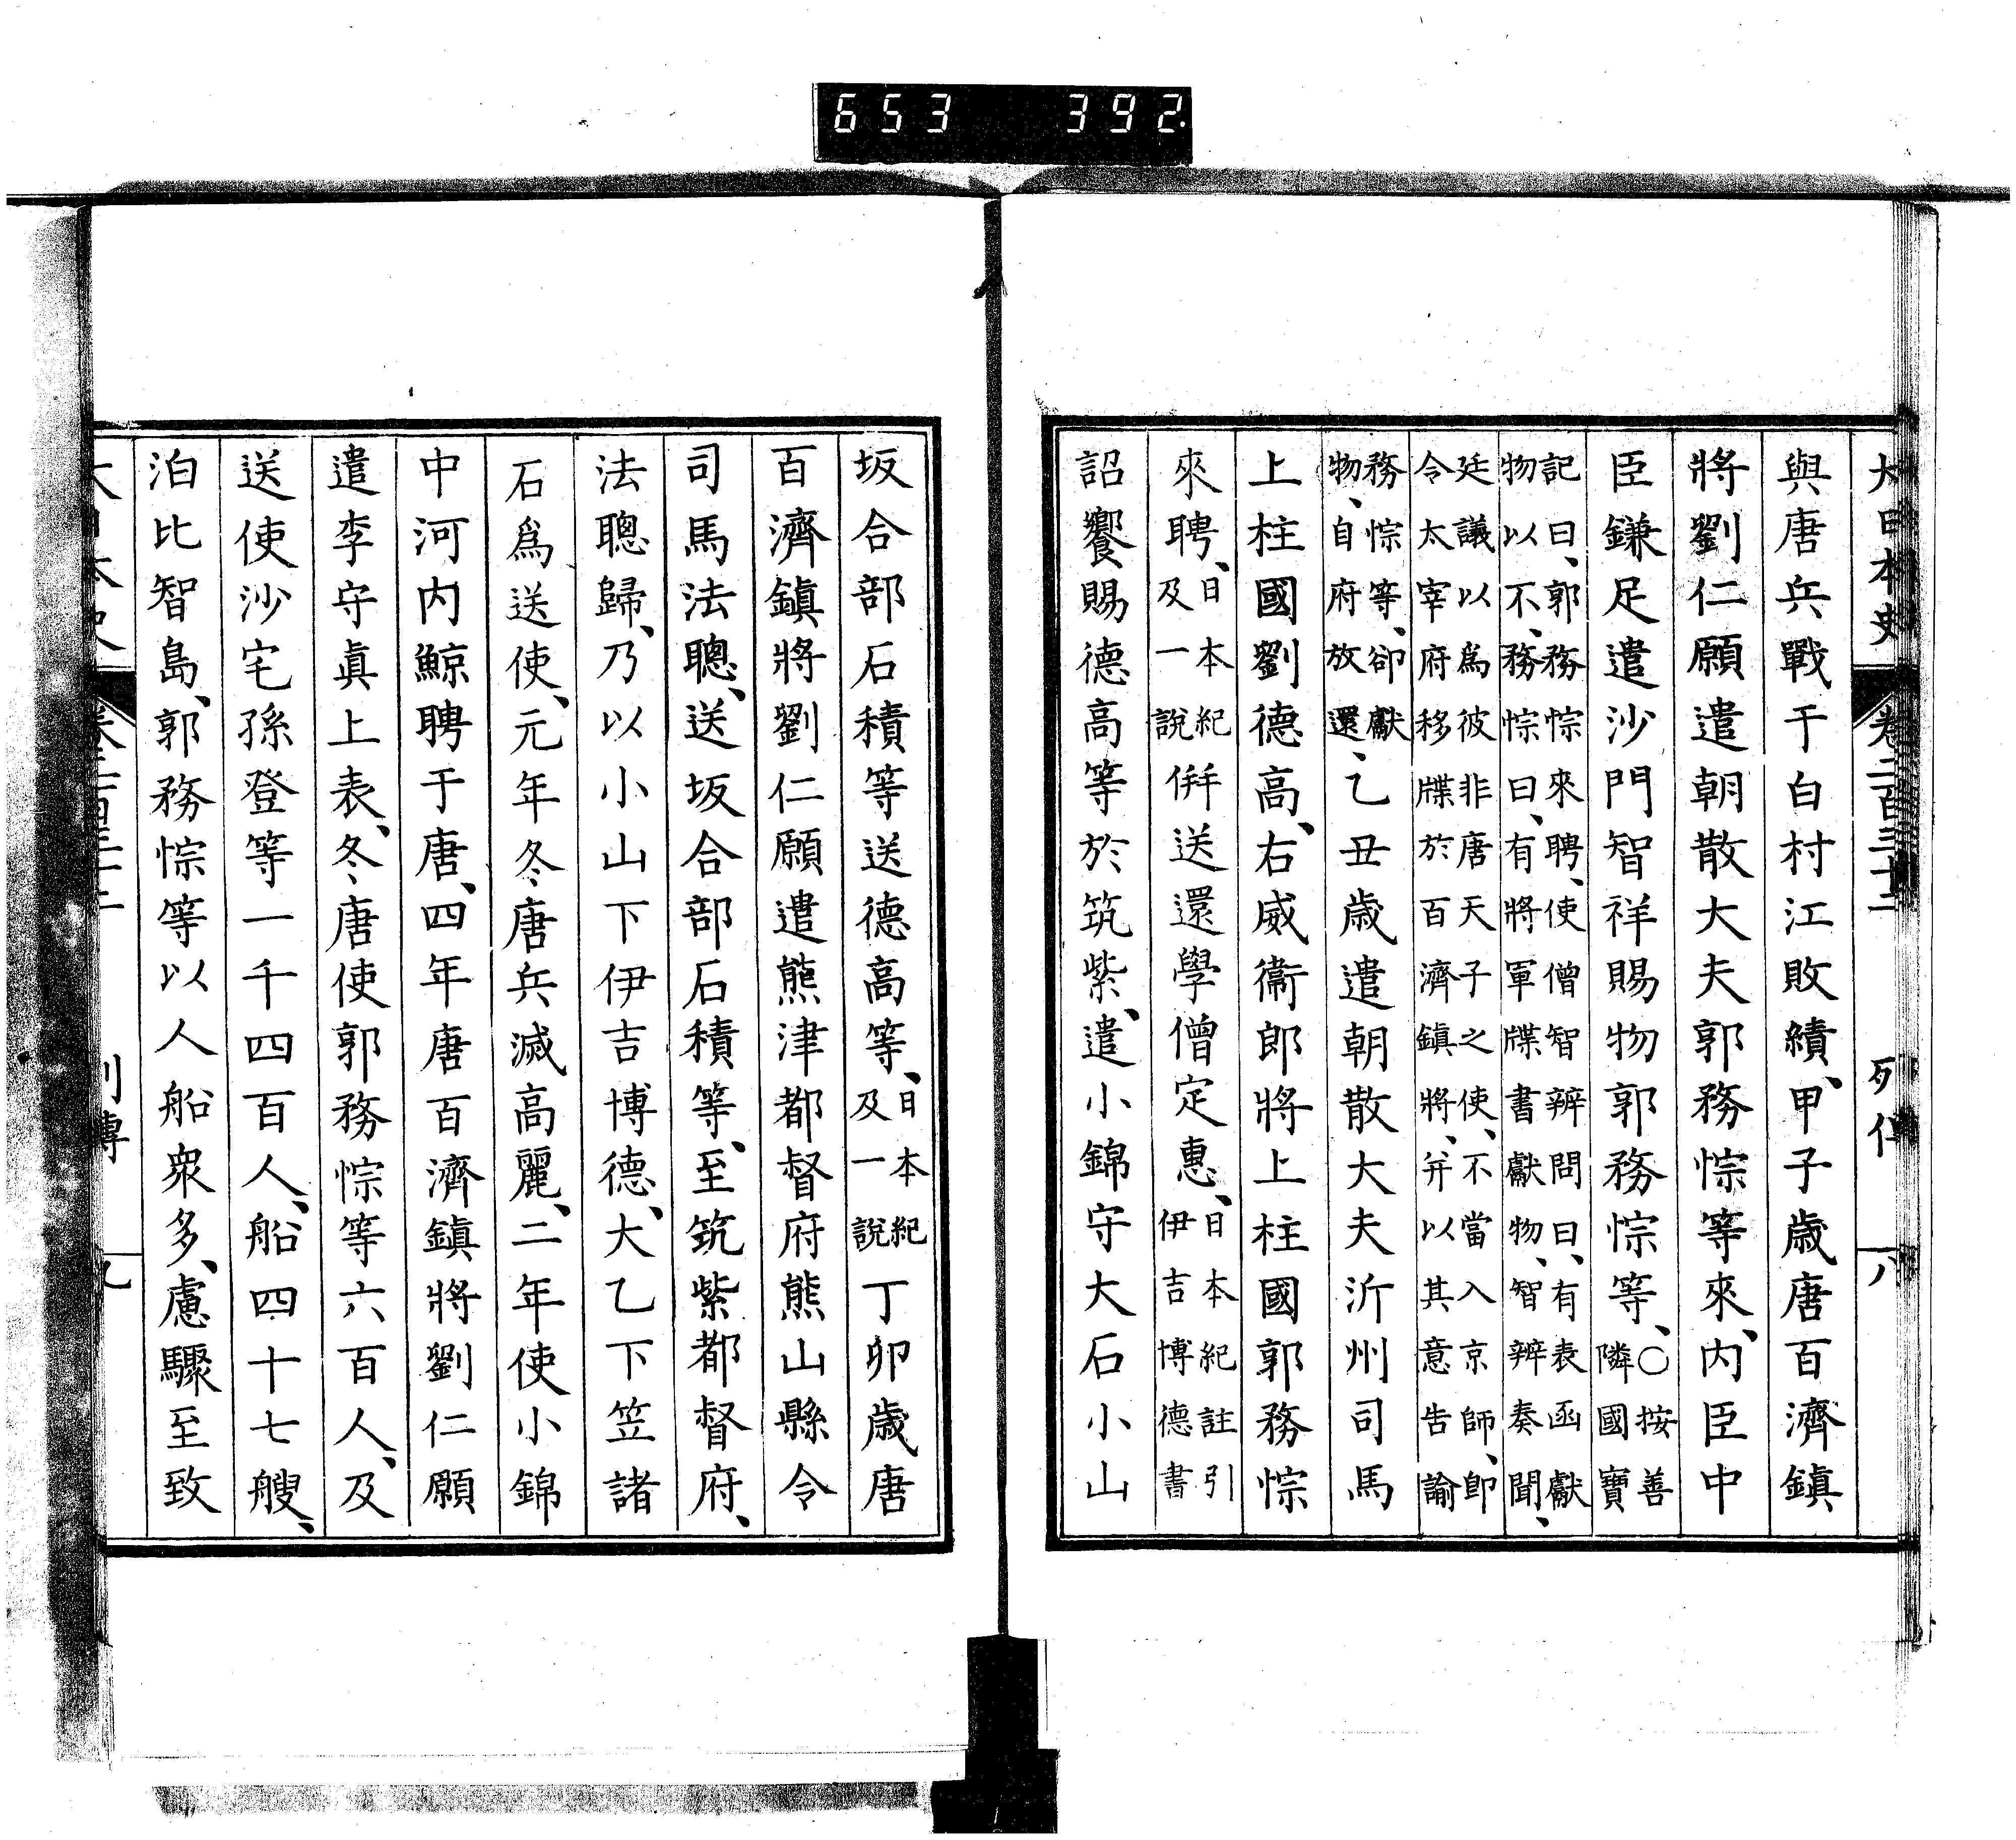 653 392
大日本史 卷二百三十二 列傳 八
與唐兵戰于白村江敗績、甲子歲唐百濟鎮
將劉仁願遣朝散大夫郭務悰等來、內臣中
臣鎌足遣沙門智祥賜物郭務悰等、○按善
隣國寶
記曰、郭務悰來聘、使僧智辨問曰、有表函獻
物以不、務悰曰、有將軍牒書獻物、智辨奏聞、
廷議以爲彼非唐天子之使、不當入京師、卽
令太宰府移牒於百濟鎮將、幷以其意告諭
務悰等、卻獻
物、自府放還、乙丑歲遣朝散大夫沂州司馬
上柱國劉德高、右威衞郎將上柱國郭務悰
來聘、日本紀
及一說併送還學僧定惠、日本紀註引
伊吉博德書
詔饗賜德高等於筑紫、遣小錦守大石小山
坂合部石積等送德高等、日本紀
及一說丁卯歲唐
百濟鎮將劉仁願遣熊津都督府熊山縣令
司馬法聰、送坂合部石積等、至筑紫都督府、
法聰歸、乃以小山下伊吉博德、大乙下笠諸
石爲送使、元年冬唐兵滅高麗、二年使小錦
中河內鯨聘于唐、四年唐百濟鎮將劉仁願
遣李守眞上表、冬唐使郭務悰等六百人、及
送使沙宅孫登等一千四百人、船四十七艘、
泊比智島、郭務悰等以人船衆多、慮驟至致
大日本史 列傳 九